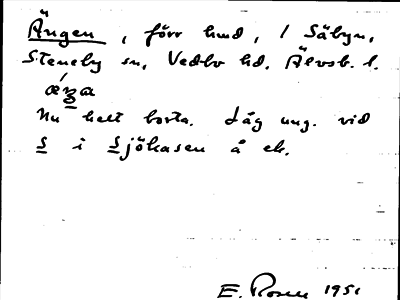 Ängen, förr hmd, / Säbyn,
Steneby sn, Vedbo hd, Älvsb. l.
Nu helt borta. Låg ung. vid
s i Sjöhasen å ek.
E. Rosen 1951